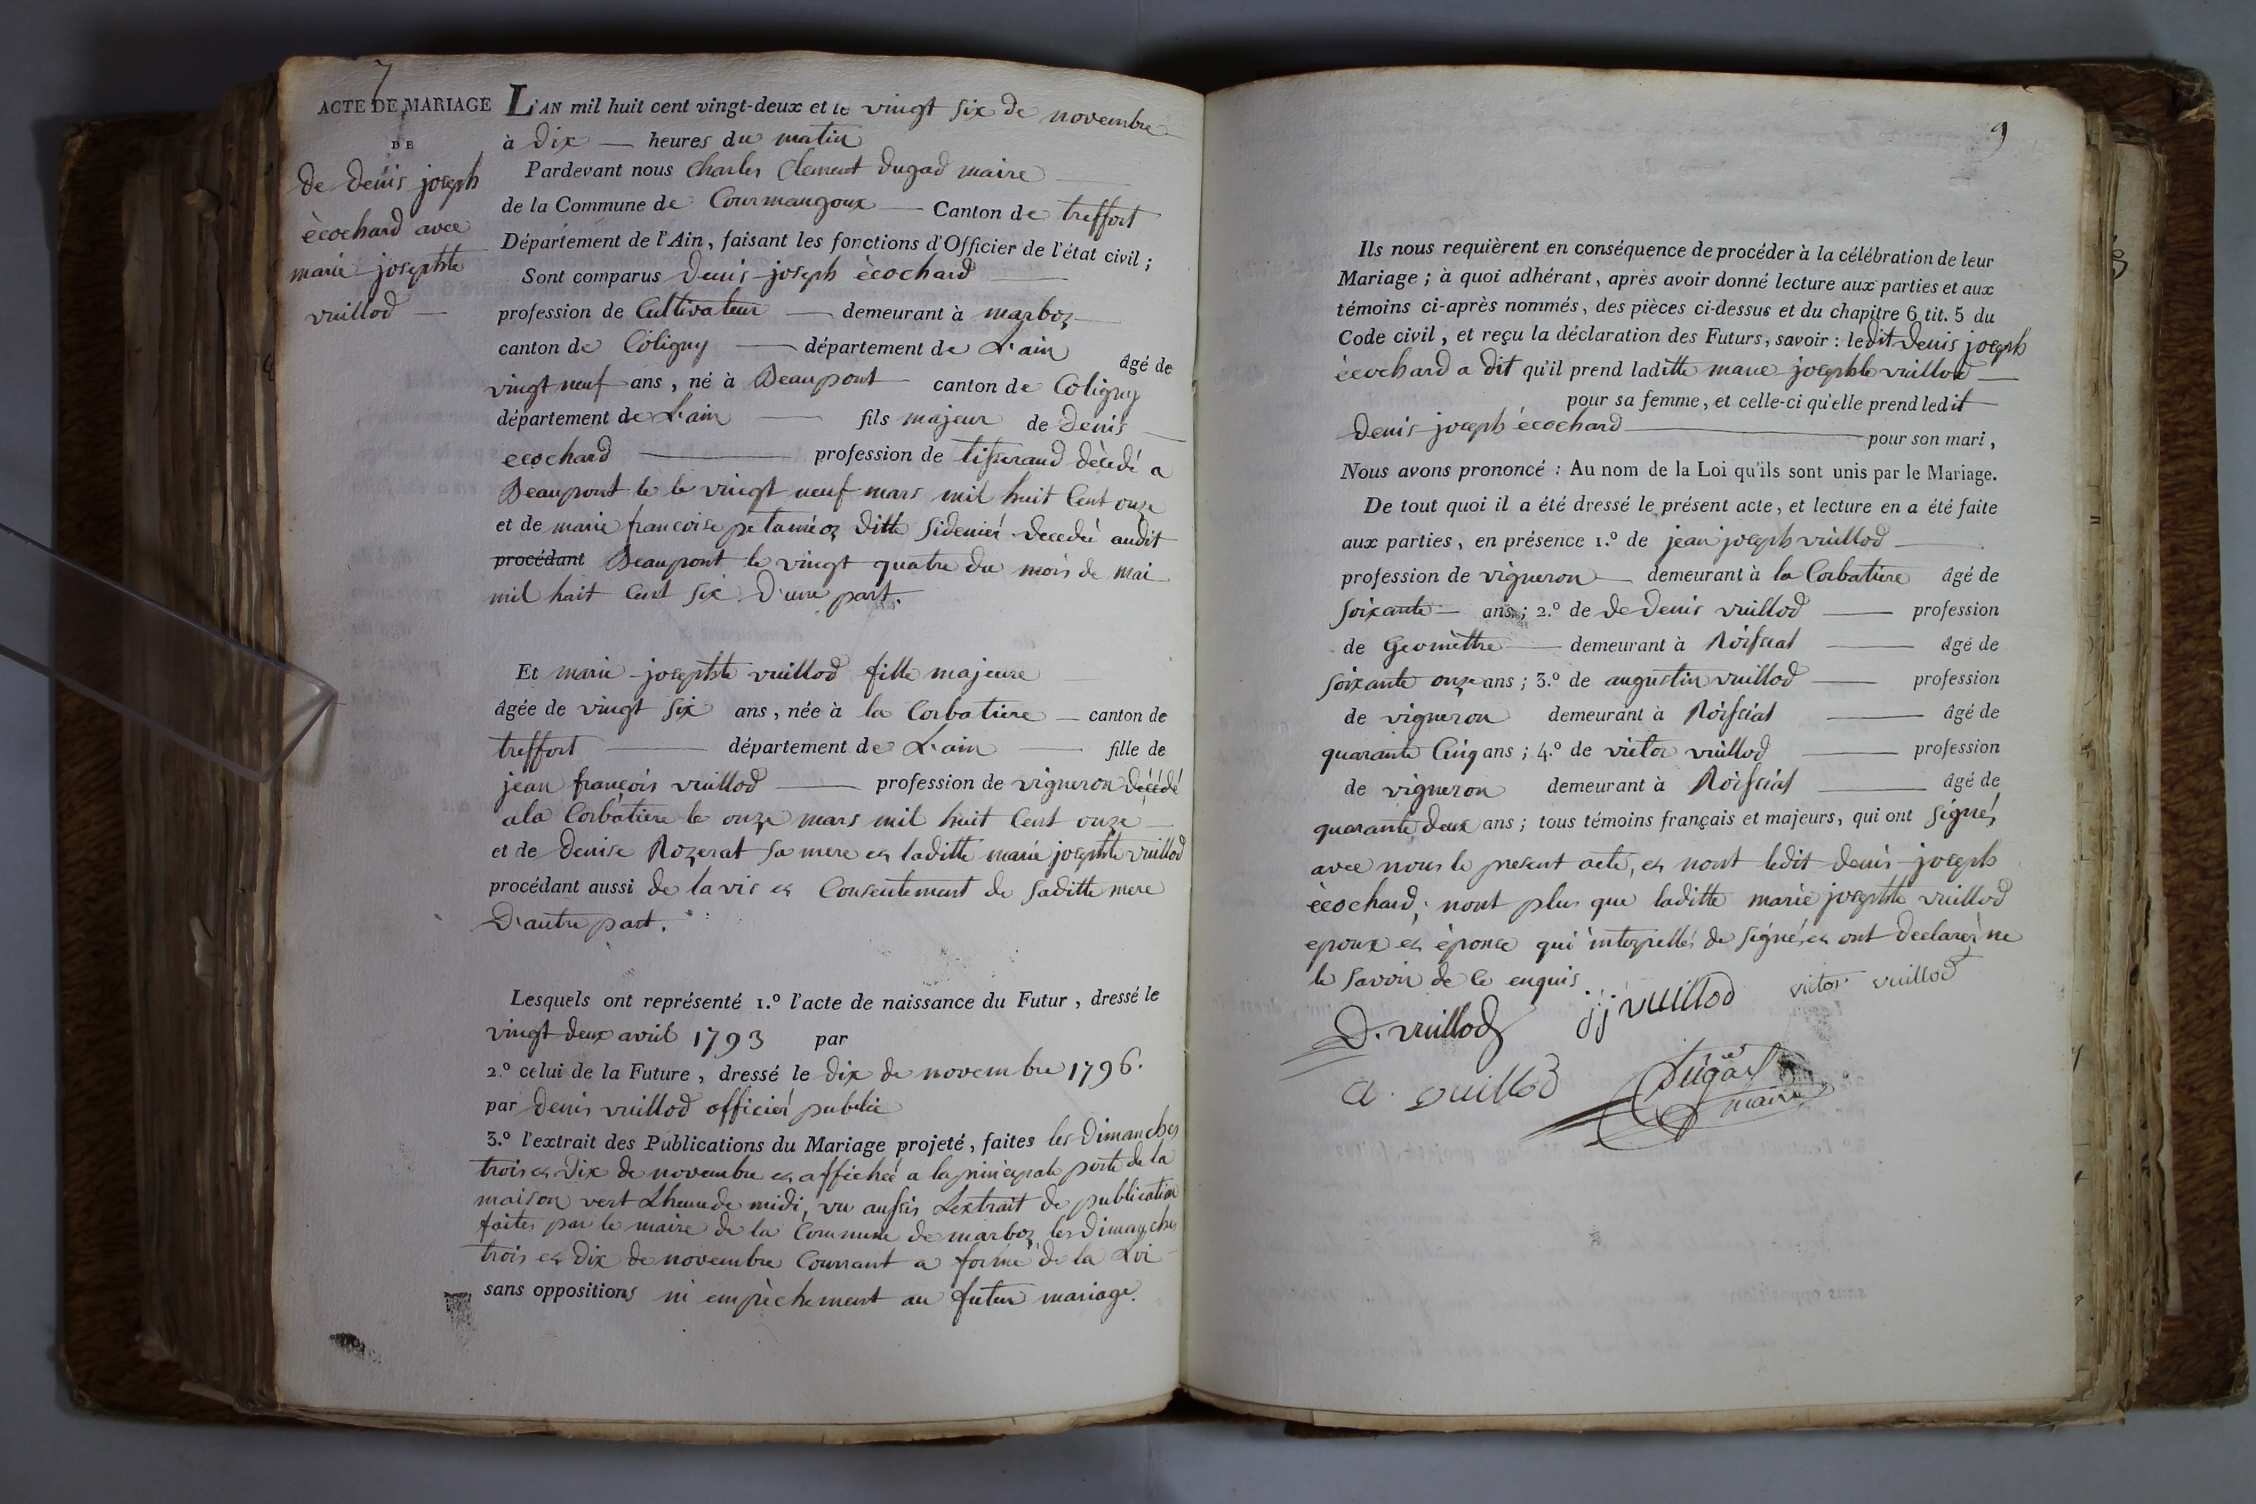 7
ACTE DE MARIAGE
DE
de denis joseph
ècochard avec
marie josephte
vuillod
L'AN mil huit cent vingt-deux et le vingt six de novembre
à dix heures du matin
Pardevant nous Charles Clement dugad maire
de la Commune de Courmangoux Canton de treffort
Département de l'Ain, faisant les fonctions d'Officier de l'état civil ;
Sont comparus denis joseph ècochard
profession de Cultivateur demeurant à marboz
canton de Coligny département de L'ain âgé de
vingt neuf ans, né à Beaupont canton de Coligny
département de L'ain fils majeur de denis
ecochard profession de tisserand décédé a
Beaupont le le vingt neuf mars mil huit Cent onze
et de marie francoise petaméoz ditte Sidenier decedée audit
procédant Beaupont le vingt quatre du mois de mai
mil huit Cent six d'une part.
Et marie josephte vuillod fille majeure
âgée de vingt six ans, née à la Corbatiere canton de
treffort département de L'ain fille de
jean françois vuillod profession de vigneron décédé
a la Corbatiere le onze mars mil huit Cent onze
et de denise Rozerat sa mere et laditte marie josephte vuillod
procédant aussi de lavis et Consentement de saditte mere
D'autre part.
Lesquels ont représenté 1.º l'acte de naissance du Futur, dressé le
vingt deux avril 1793 par
2.º celui de la Future, dressé le dix de novembre 1796.
par denis vuillod officier public
3.º l'extrait des Publications du Mariage projeté, faites les dimanches
trois et dix de novembre et affiché a la principale porte de la
maison vert Lheure de midi, vu aussis Lextrait de publication
faites par le maire de la Commune de marboz les dimanches
trois et dix de novembre Courrant a forme de la Loi
sans oppositions ni empèchement au futur mariage.
9
Ils nous requièrent en conséquence de procéder à la célébration de leur
Mariage ; à quoi adhérant, après avoir donné lecture aux parties et aux
témoins ci-après nommés, des pièces ci-dessus et du chapitre 6, tit. 5 du
Code civil, et reçu la déclaration des Futurs, savoir : ledit denis joseph
ècochard a dit qu'il prend laditte marie josephte vuillod
pour sa femme, et celle-ci qu'elle prend ledit
denis joseph écochard pour son mari,
Nous avons prononcé : Au nom de la Loi qu'ils sont unis par le Mariage.
De tout quoi il a été dressé le présent acte, et lecture en a été faite
aux parties, en présence 1.º de jean joseph vuillod
profession de vigneron demeurant à la Corbatiere âgé de
soixante ans ; 2.º de de denis vuillod profession
de Geomèttre demeurant à Roissiat âgé de
soixante onze ans ; 3.º de augustin vuillod profession
de vigneron demeurant à Roissiat âgé de
quarante Cinq ans ; 4.º de victor vuillod profession
de vigneron demeurant à Roissiat âgé de
quarante deux ans ; tous témoins français et majeurs, qui ont signés
avec nous le present acte, et nont ledit denis joseph
ècochard, nont plus que laditte marie josephte vuillod
epoux et èpouse qui interpellés de signé, et ont declarés ne
le savoir de ce enquis
D. vuillod jj vuillod victor vuillod
a. vuillod Dugad
maire